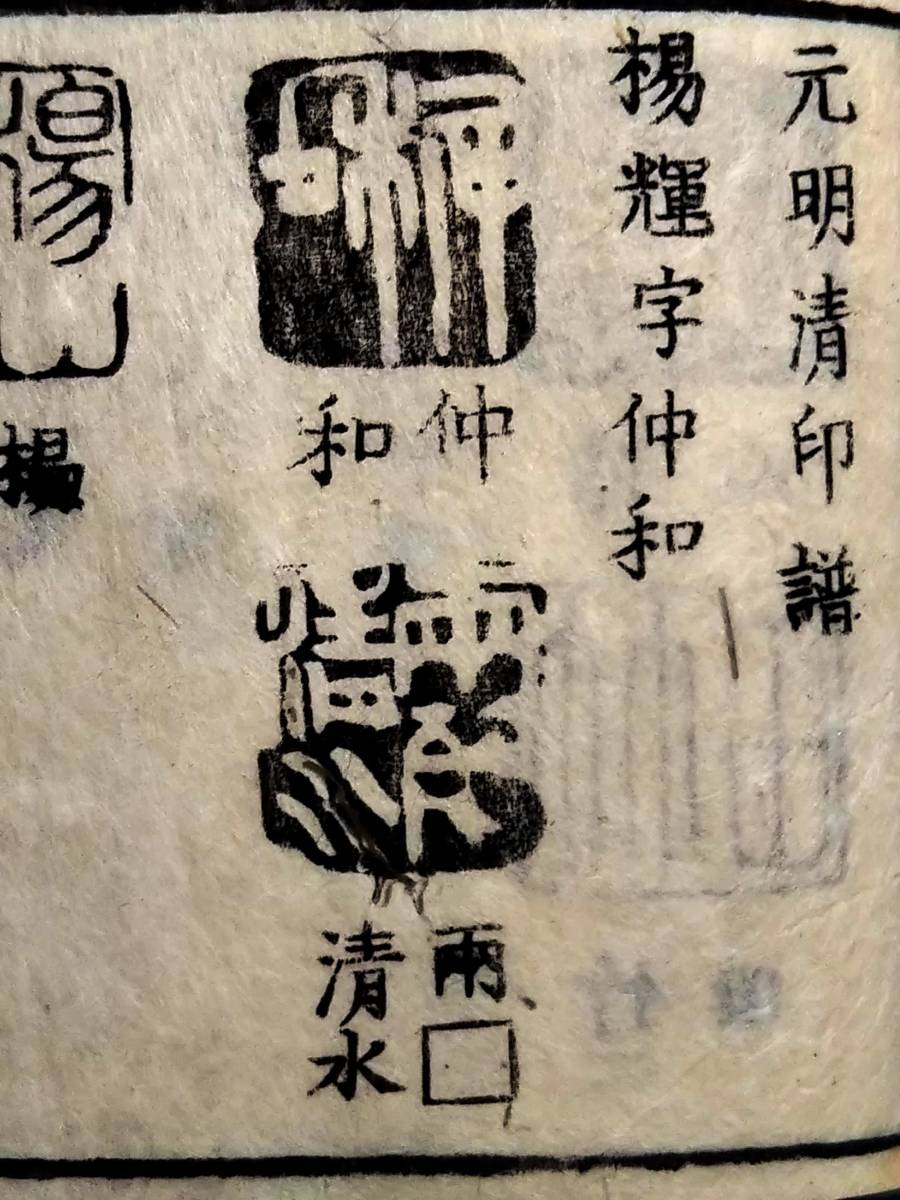 元明清印譜
楊輝字仲和
仲
和
兩□
清水
楊